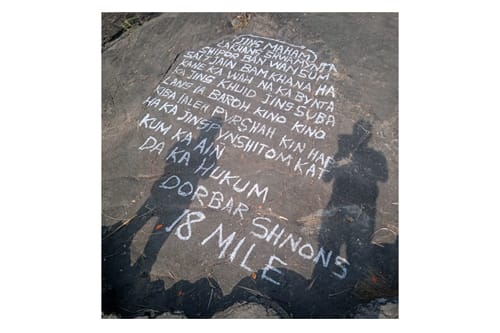 JING MAHAM
LAKHANG SHWA MYNTA
SHIPOR BAN WAN SUM
SAIT JAIN BAM KHANA HA
KANE KA WAH NA KA BYNTA
KA JING KHUID JING SUBA
LANG IA BAROH KINO KINO
KIBA IALEH PYRSHAH KIN HAP
HA KA JINGPYNSHITOM KAT
KUM KA AIÑ
DA KA HUKUM
DORBAR SHNONS
18 MILE